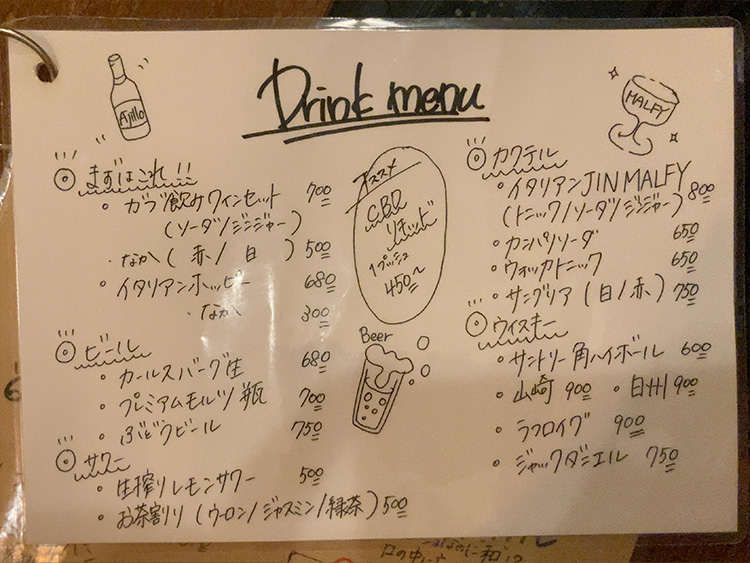 Drink menu
Ajillo
まずはこれ!!
・ガラ飲みワインセット 700
(ソーダ/ジンジャー)
・なか(赤/白) 500
・イタリアンホッピー 680
・なか 300
ビール
・カールスバーグ生 680
・プレミアムモルツ瓶 700
・ぶどうビール 750
サワー
・生搾りレモンサワー 500
・お茶割り(ウーロン/ジャスミン/緑茶) 500
オススメ
CBD
リキッド
1プッシュ
450~
Beer
MALFY
カクテル
・イタリアンJIN MALFY
(トニック/ソーダ/ジンジャー) 800
・カンパリソーダ 650
・ウォッカトニック 650
・サングリア(白/赤) 750
ウィスキー
・サントリー角ハイボール 600
・山崎 900 ・白州 900
・ラフロイグ 900
・ジャックダニエル 750